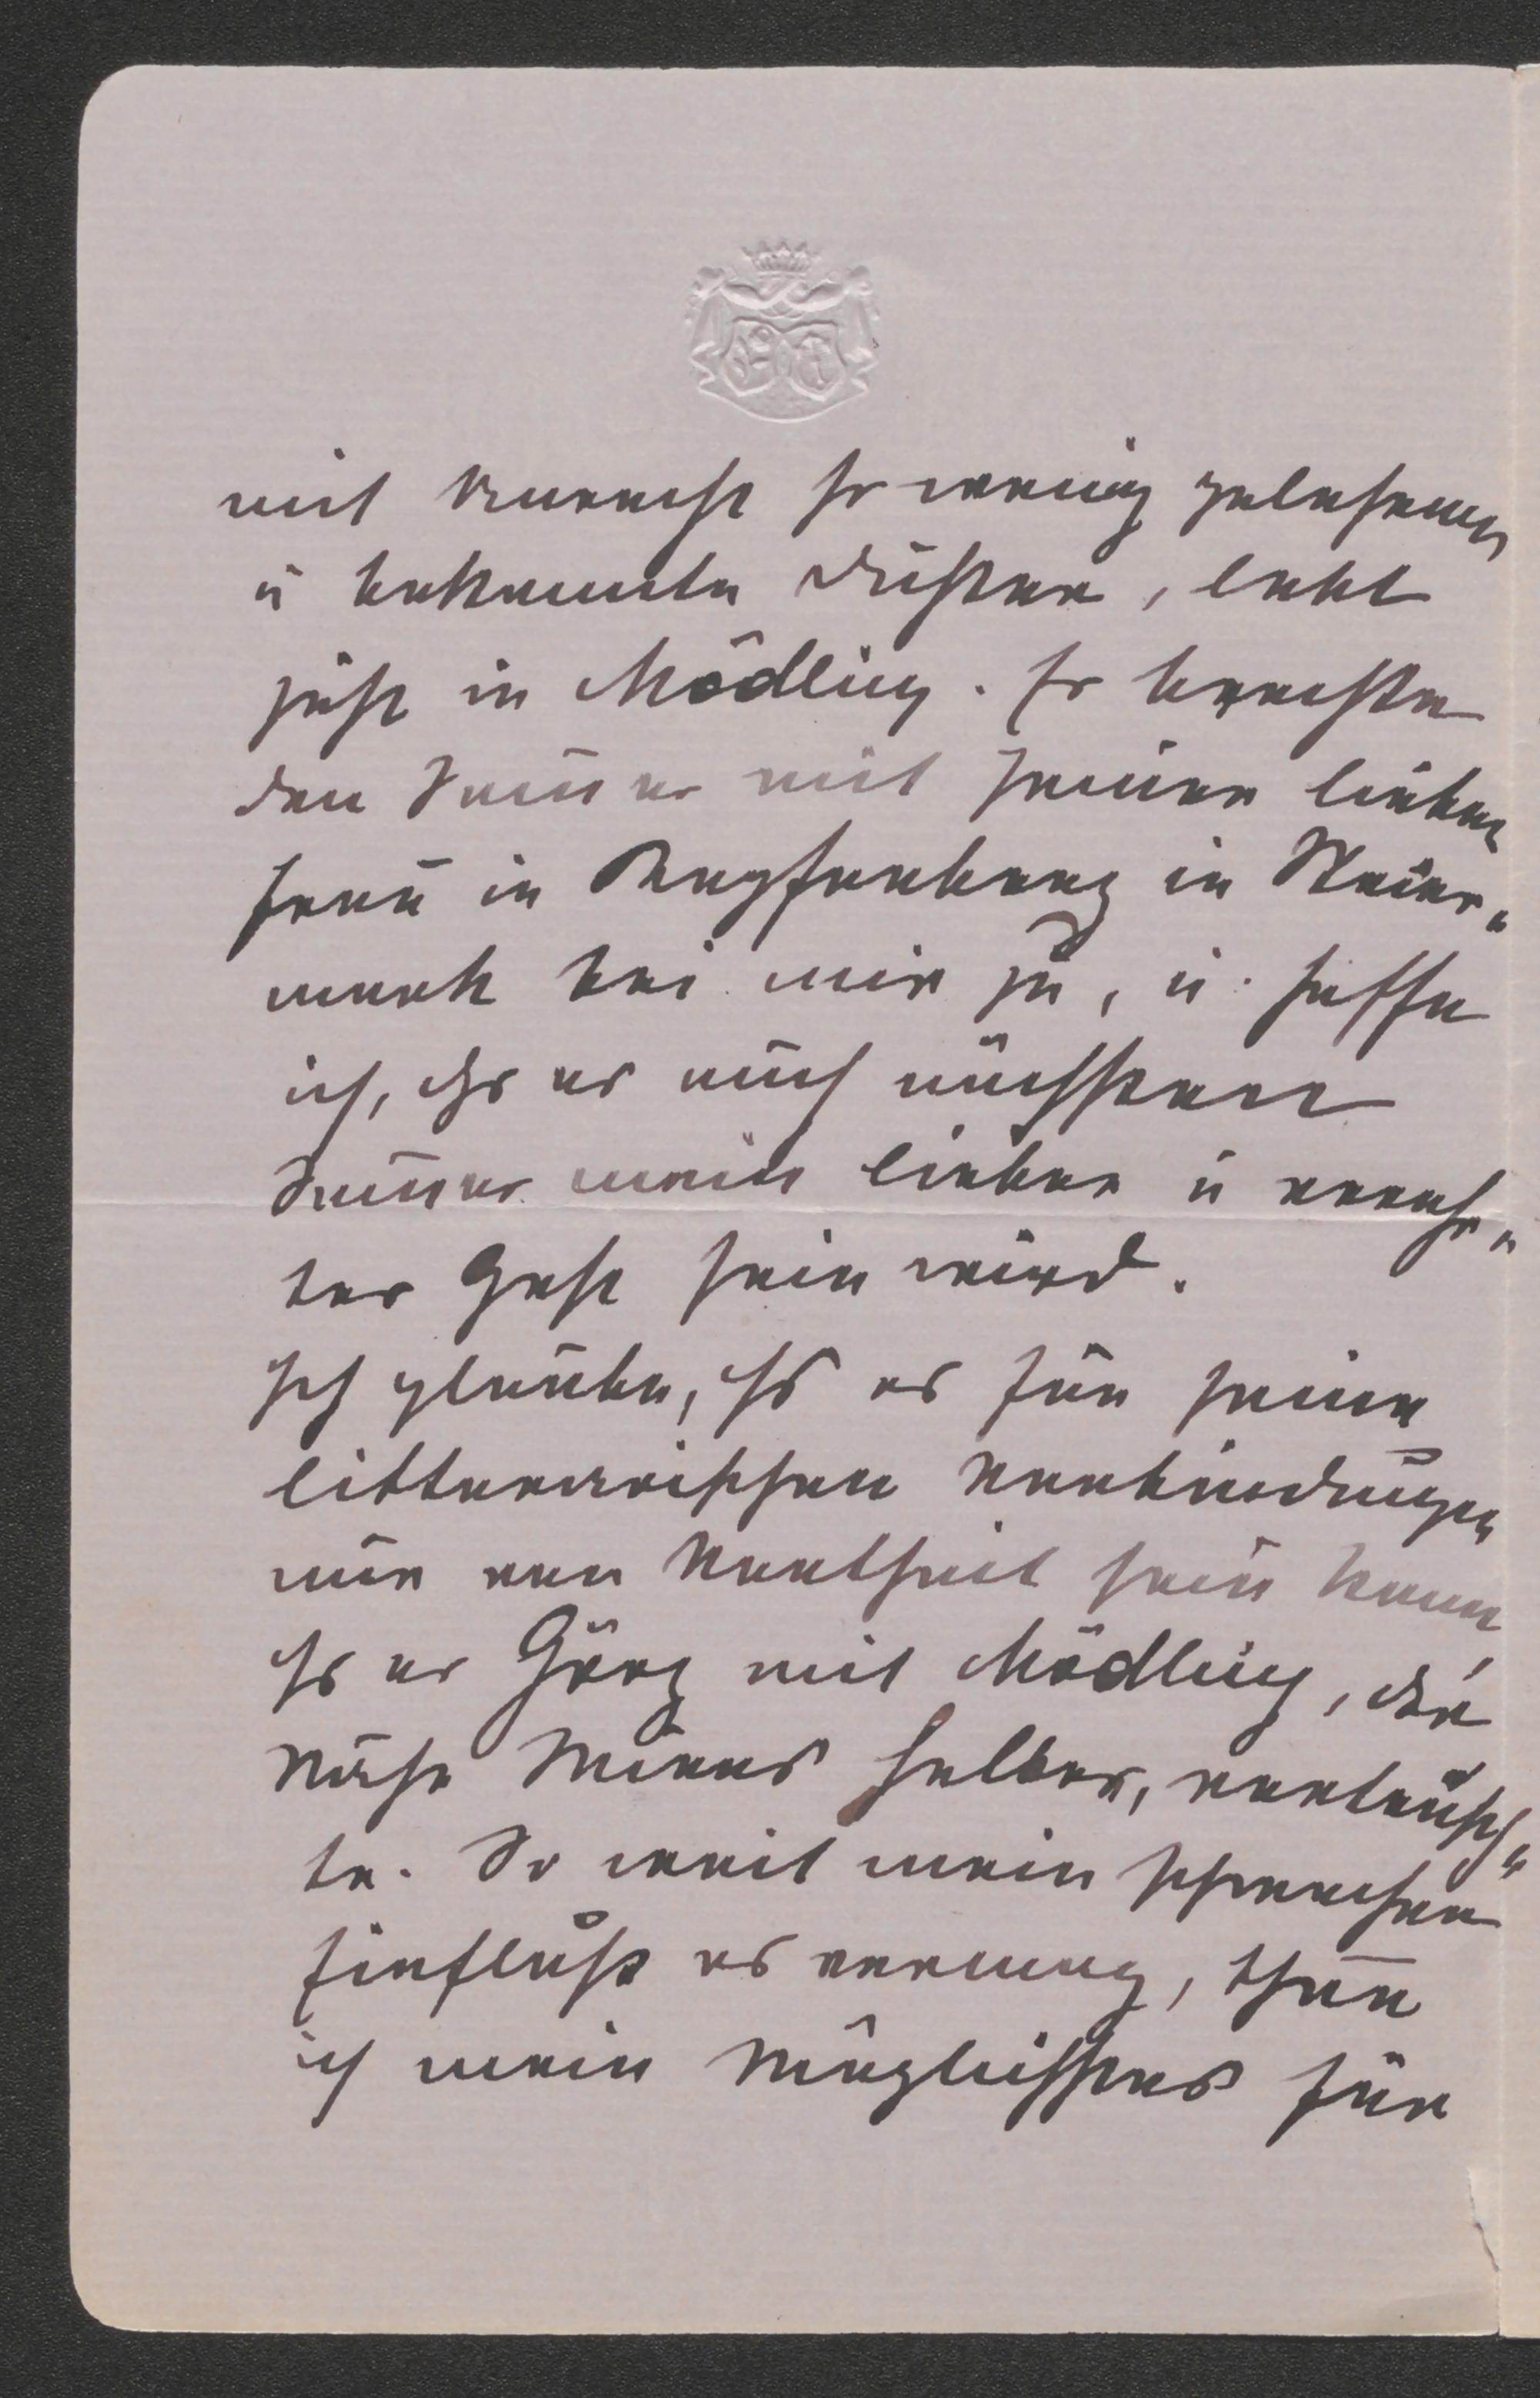 mit Unrecht so wenig gelesenen
u bekannte Dichter, lebt
jetzt in Mödling. Er brachte
den Som̄er mit seiner lieben
Frau in Kapfenberg in Steier„
mark bei mir zu, u. hoffe
ich, dß er auch nächsten
Som̄er mein lieber u verehr„
ter Gast sein wird.
Ich glaube, dß es für seine
litterarischen Verbindungen
nur von Vortheil sein kann
dß er Görz mit Mödling, die
Nähe Wiens selber, vertausch„
te. So weit mein schwacher
Einfluß es vermag, thue
ich mein Möglichstes für